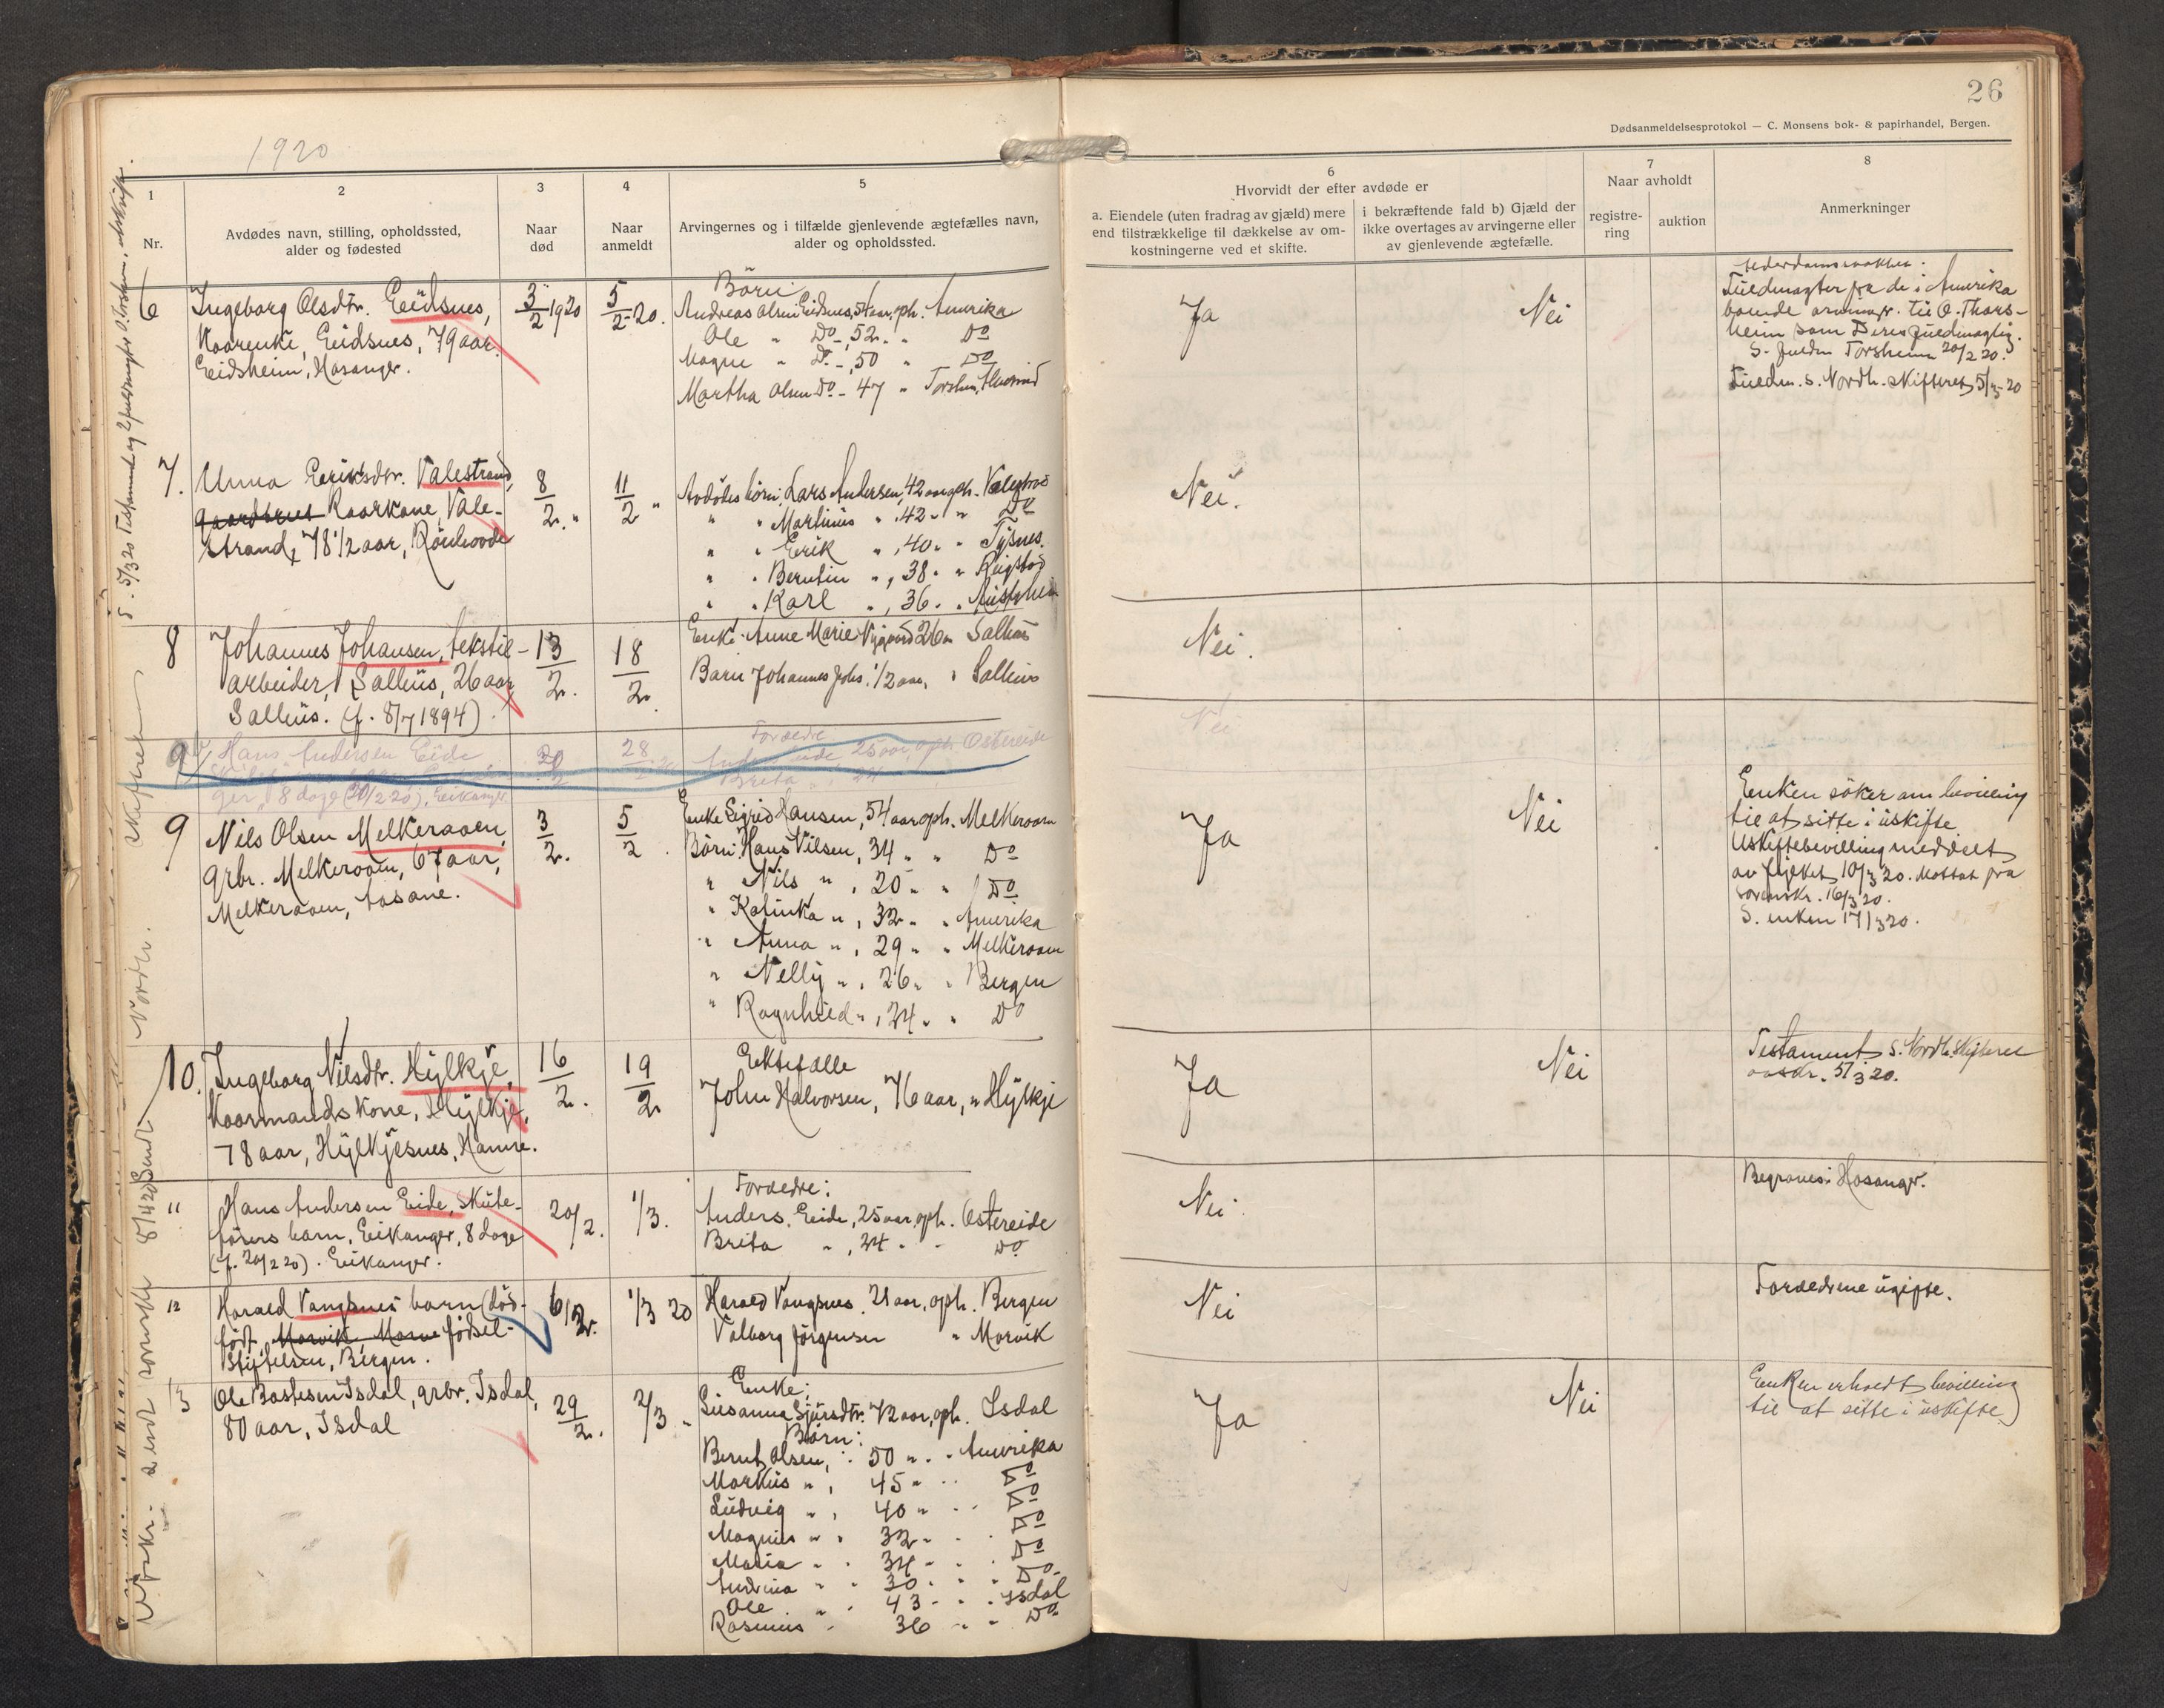 26
Dødsanmeldelsesprotokol — C. Monsens bok- & papirhandel, Bergen.
1920
1
Nr.
2
Avdødes navn, stilling, opholdssted,
alder og fødested
3
Naar
død
4
Naar
anmeldt
5
Arvingernes og i tilfælde gjenlevende ægtefælles navn,
alder og opholdssted.
6
Hvorvidt der efter avdøde er
a. Eiendele (uten fradrag av gjæld) mere
end tilstrækkelige til dækkelse av om-
kostningerne ved et skifte.
i bekræftende fald b) Gjæld der
ikke overtages av arvingerne eller
av gjenlevende ægtefælle.
7
Naar avholdt
registre-
ring
auktion
8
Anmerkninger
6
Ingeborg Olsdtr. Eidsnes,
Kaarenke, Eidsnes, 79 aar.
Eidsheim, Hosangr.
3/2 1920
5/2-20.
Börn
Andreas Olsen Eidsnes, 54 aar, oph. Amerika
Ole " Do -, 52 " " Do
Magne " Do -, 50 " Do
Martha Olsen Do - 47 "
Ja
Nei
Fuldmagter fra de i Amerika
boende arvingr. til O. Thors-
heim som Deres fuldmægtig.
S. fuldm Torsheim 20/2 20.
Fuldm. s. Nordh. skifteret 5/3-20
7.
Unna Eeriksdtr. Valestrand,
Kaarkone, Vale-
strand, 78 1/2 aar,
8/2. "
11/2 "
Avdödes börn: Lars Andersen, 42 aar oph. Valestrand
" " Martinus " , 42 " " Do
" " Eerik " , 40 " " Tysnes.
" " Berntin " , 38 " " Reigstad
" " Karl " , 36 " "
Nei.
8
Johannes Johansen, tekstil-
arbeider, Salhus, 26 aar
Salhus. (f. 8/7 1894).
13/2.
18/2.
Enke: Anne Marie 26 " Salhus
Barn Johannes Johs. 1/2 aar, " Salhus
Nei.
9
Hans Andersen Eide
ger, 8 dage (20/2-20), Eikanger.
20/2
28/2 20
Forældre
Anders Eide 25 aar, oph. Ostereide
Brita " 24
Nei
9
Nils Olsen Melkeraaen,
grbr. Melkeraaen, 67 aar,
Melkeraaen, Aasane.
3/2.
5/2.
Enke Sigrid Hansen, 54 aar oph. Melkeraaen
Börn: Hans Nilsen, 34 " " Do
" Nils " , 20 " " Do
" Kalinka " , 32 " " Amerika
" Anna " , 29 " " Melkeraaen
" Nelly " , 26 " " Bergen
" Ragnhild " , 24 " " Do
Ja
Nei
Enken söker om bevilling
til at sitte i uskifte
Uskiftebevilling meddelt
av fylket 10/3 20. Mottat fra
sorenskr. 16/3 20.
S. enken 17/3 20.
10.
Ingeborg Nilsdtr. Hylkje,
Kaarmandskone, Hylkje,
78 aar, Hylkjesnes, Hamre.
16/2.
19/2
Ektefælle
John Halvorsen, 76 aar, " Hylkje
Ja
Nei
Testament s. Nordh. skifteret
5/3 20.
11
Hans Andersen Eide, skute-
förers barn, Eikanger, 8 dage
(f. 20/2 20). Eikanger.
20/2.
1/3.
Forældre:
Anders Eide, 25 aar, oph. Ostereide
Brita " , 24 " " Do
Nei
Begraves i Hosangr.
12
Harald Vangsnes barn (död-
född, Morvik, födsel-
stiftelsen, Bergen.
6/2.
1/3 20
Harald Vangsnes. 21 aar, oph. Bergen
Valborg Jörgensen " Morvik
Nei
Forældrene ugifte.
13
Ole Bastesen Isdal, grbr. Isdal,
80 aar, Isdal
29/2.
2/3 "
Enke:
Susanna Sjursdtr. 72 aar, oph. Isdal
Börn:
Bernt Olsen, " 50 " " Amerika
Markus " , 45 " " Do
Ludvig " , 40 " " Do
Magnus " " 32 " " Do
Maria " " 34 " " Do
Andrina " " 30 " " Do
Ole " " 43 " " Isdal
Rasmus " 36 " " Do
Ja
Nei
Enken erholdt bevilling
til at sitte i uskifte)